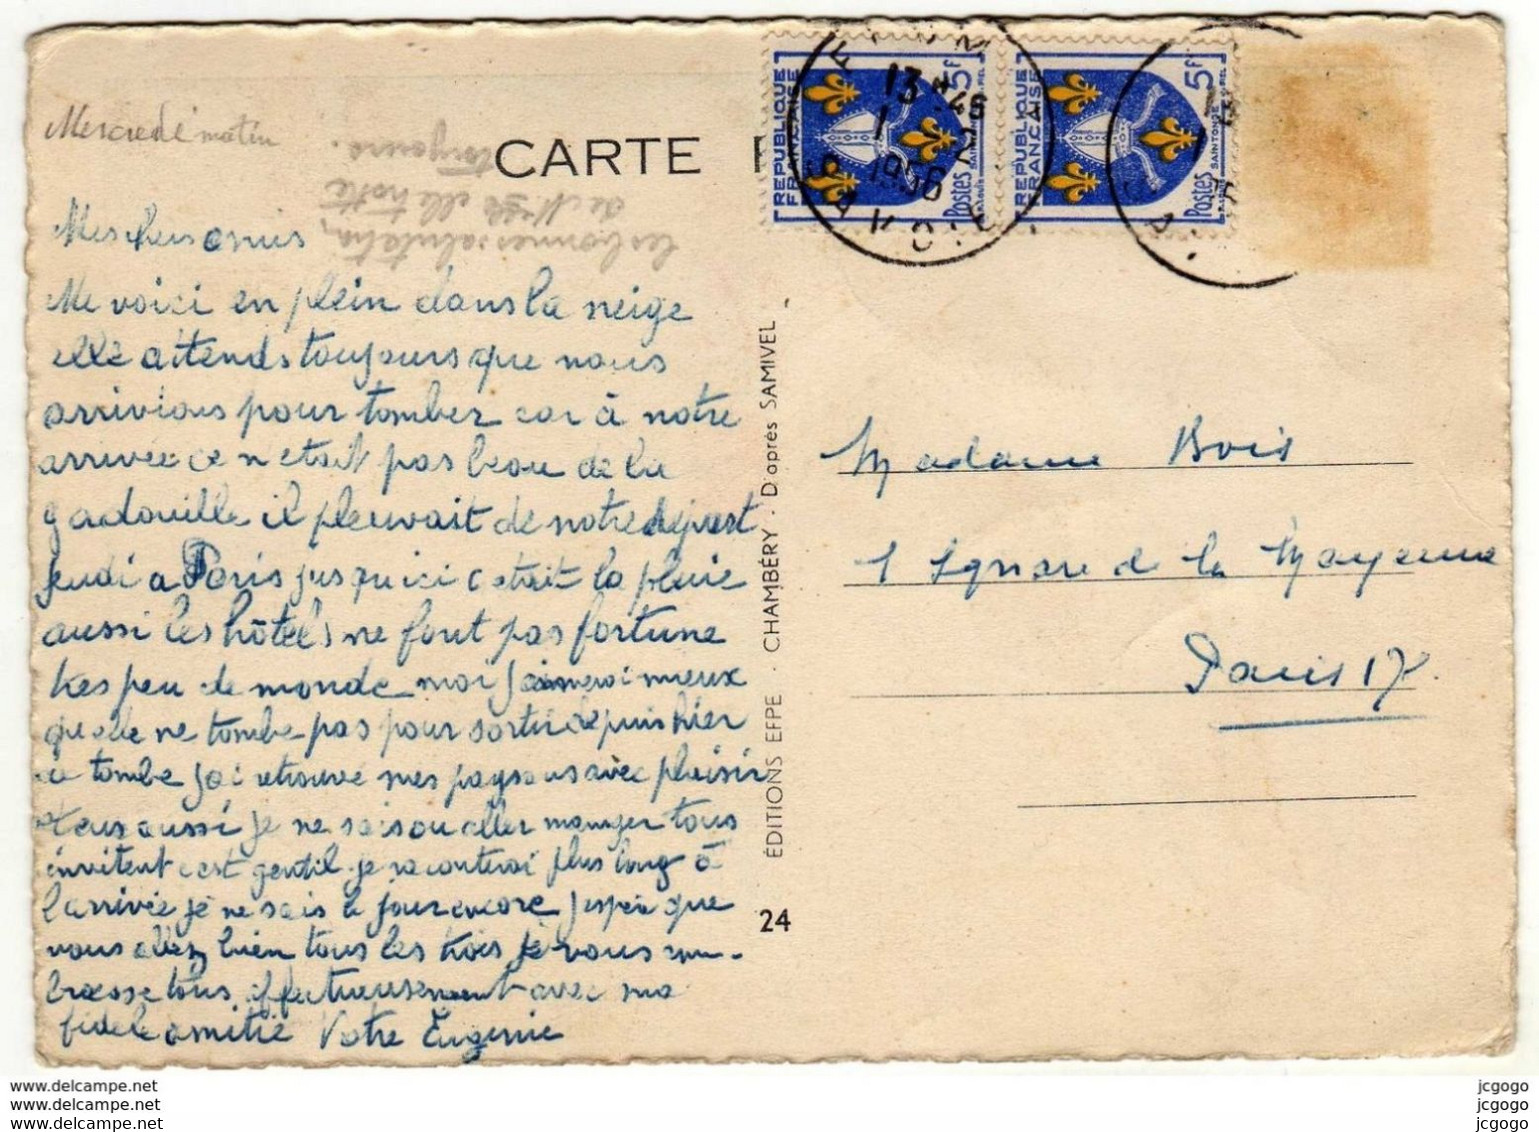 Mercredi matin
CARTE
les bonnes salutations
de Melle elle trotte
toujours.
Mes chers amis
Me voici en plein dans la neige
elle attends toujours que nous
arrivions pour tomber car à notre
arrivée ce n'etait pas beau de la
gadouille il pleuvait de notre depart
jeudi a Paris jusqu ici c etait la pluie
aussi les hôtels ne font pas fortune
tres peu de monde moi j aimerai mieux
quelle ne tombe pas pour sortir depuis hier
ça tombe j ai retrouvé mes paysans avec plaisir
eux aussi je ne sais ou aller manger tous
invitent c est gentil je raconterai plus long à
l arrivée je ne sais le jour encore j espère que
vous allez bien tous les trois je vous em-
brasse tous affectueusement avec ma
fidele amitié Votre Eugenie
ÉDITIONS EFPE . CHAMBÉRY . D'après SAMIVEL
24
RÉPUBLIQUE FRANÇAISE
5f
Postes
SAINTONGE
RÉPUBLIQUE FRANÇAISE
5f
Postes
SAINTONGE
13 H 45
1 2
1956
SAVOIE
Madame Bois
1 Square de la Mayenne
Paris 17
www.delcampe.net
www.delcampe.net
www.delcampe.net
jcgogo
jcgogo
jcgogo